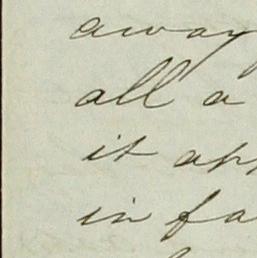 away
all a
it app
in fa